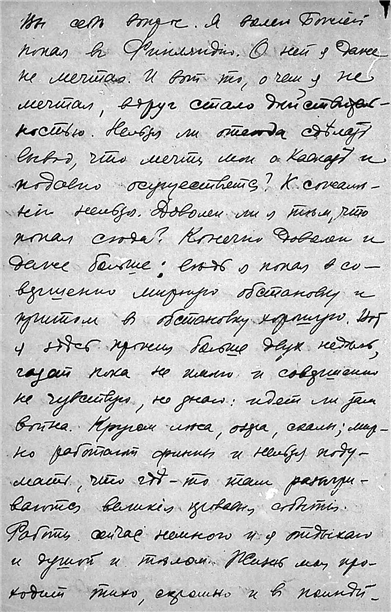 сть вопрос. Я волей Божией
попал в Финляндию. О ней я даже
не мечтал. И вот то, о чем я не
мечтал, вдруг стало действитель-
ностью. Нельзя ли отсюда сделать
вывод, что мечты мои о Кавказѣ и
подавно осуществятся? К сожале-
нию нельзя. Доволен ли я тѣм, что
попал сюда? Конечно доволен и
даже больше: ведь я попал в со-
вершенно мирную обстановку и
притом в обстановку хорошую. Вот
я здѣсь прожил больше двух недѣль,
газет пока не читаю и совершенно
не чувствую, не знаю: идет ли там
война. Кругом лѣса, озера, скалы; мир-
но работают финны и нельзя поду-
мать, что гдѣ-то там разыгры-
ваются великія мировыя событія.
Работы сейчас немного и я отдыхаю
и душой и тѣлом. Жизнь моя про-
ходит тихо, скромно и в